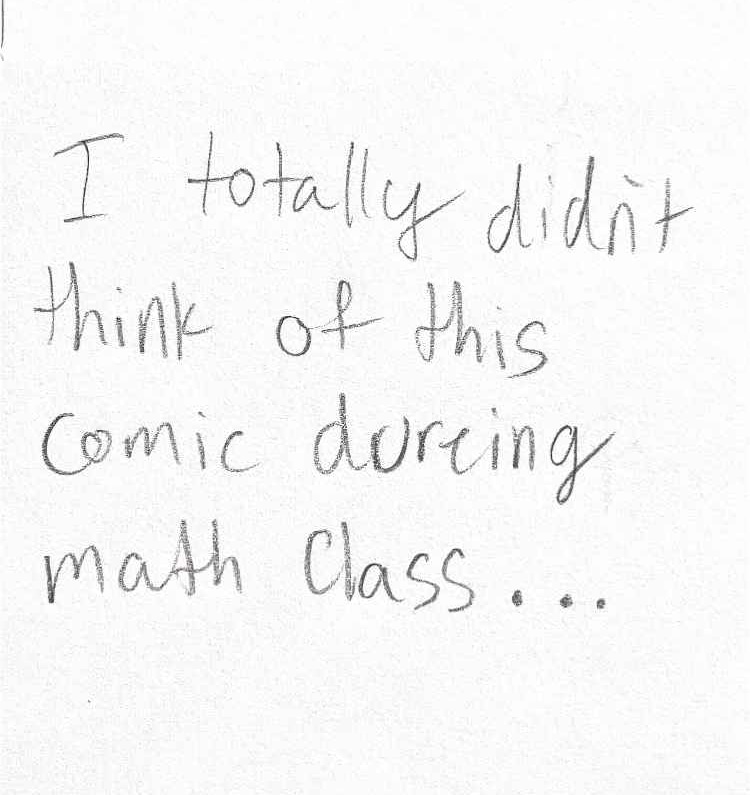 I totally didn't
think of this
comic dureing
math class...